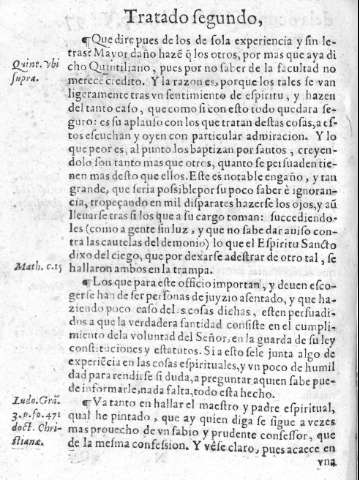 Tratado segundo,
¶Que dire pues de los de sola experiencia y sin le-
tras? Mayor daño hazē q̃ los otros, por mas que aya di
cho Quintiliano, pues por no saber de la facultad no
merece credito. Y la razon es, porque los tales se van
ligeramente tras vn sentimiento de espiritu, y hazen
del tanto caso, que como si con esto todo quedara se-
guro: es su aplauso con los que tratan destas cosas, a es-
tos escuchan y oyen con particular admiracion. Y lo
que peor es, al punto los baptizan por santos, creyen-
dolo son tanto mas que otros, quanto se persuaden tie-
nen mas desto que ellos. Este es notable engaño, y tan
grande, que seria possible por su poco saber è ignoran-
cia, tropeçando en mil disparates hazerse los ojos, y aũ
lleuarse tras si los que a su cargo toman: succediendo-
les (como a gente sin luz, y que no sabe dar auiso con-
tra las cautelas del demonio) lo que el Espiritu Sancto
dixo del ciego, que por dexarse adestrar de otro tal, se
hallaron ambos en la trampa.
¶Los que para este officio importan, y deuen esco-
gerse han de ser personas de juyzio asentado, y que ha-
ziendo poco caso delas cosas dichas, esten persuadi-
dos a que la verdadera santidad consiste en el cumpli-
miento dela voluntad del Señor, en la guarda de su ley
constituciones y estatutos. Si a esto se le junta algo de
experiēcia en las cosas espirituales, y vn poco de humil
dad para rendirse si duda, a preguntar a quien sabe pue-
de informarle, nada falta, todo esta hecho.
¶Va tanto en hallar el maestro y padre espiritual,
qual he pintado, que ay quien diga se sigue a vezes
mas prouecho de vn sabio y prudente confessor, que
de la mesma confession. Y vése claro, pues acaece en
vna
Quint. vbi
supra.
Math. c. 15
Ludo. Grā.
3. p. fo. 471
doct. Chri-
stianæ.